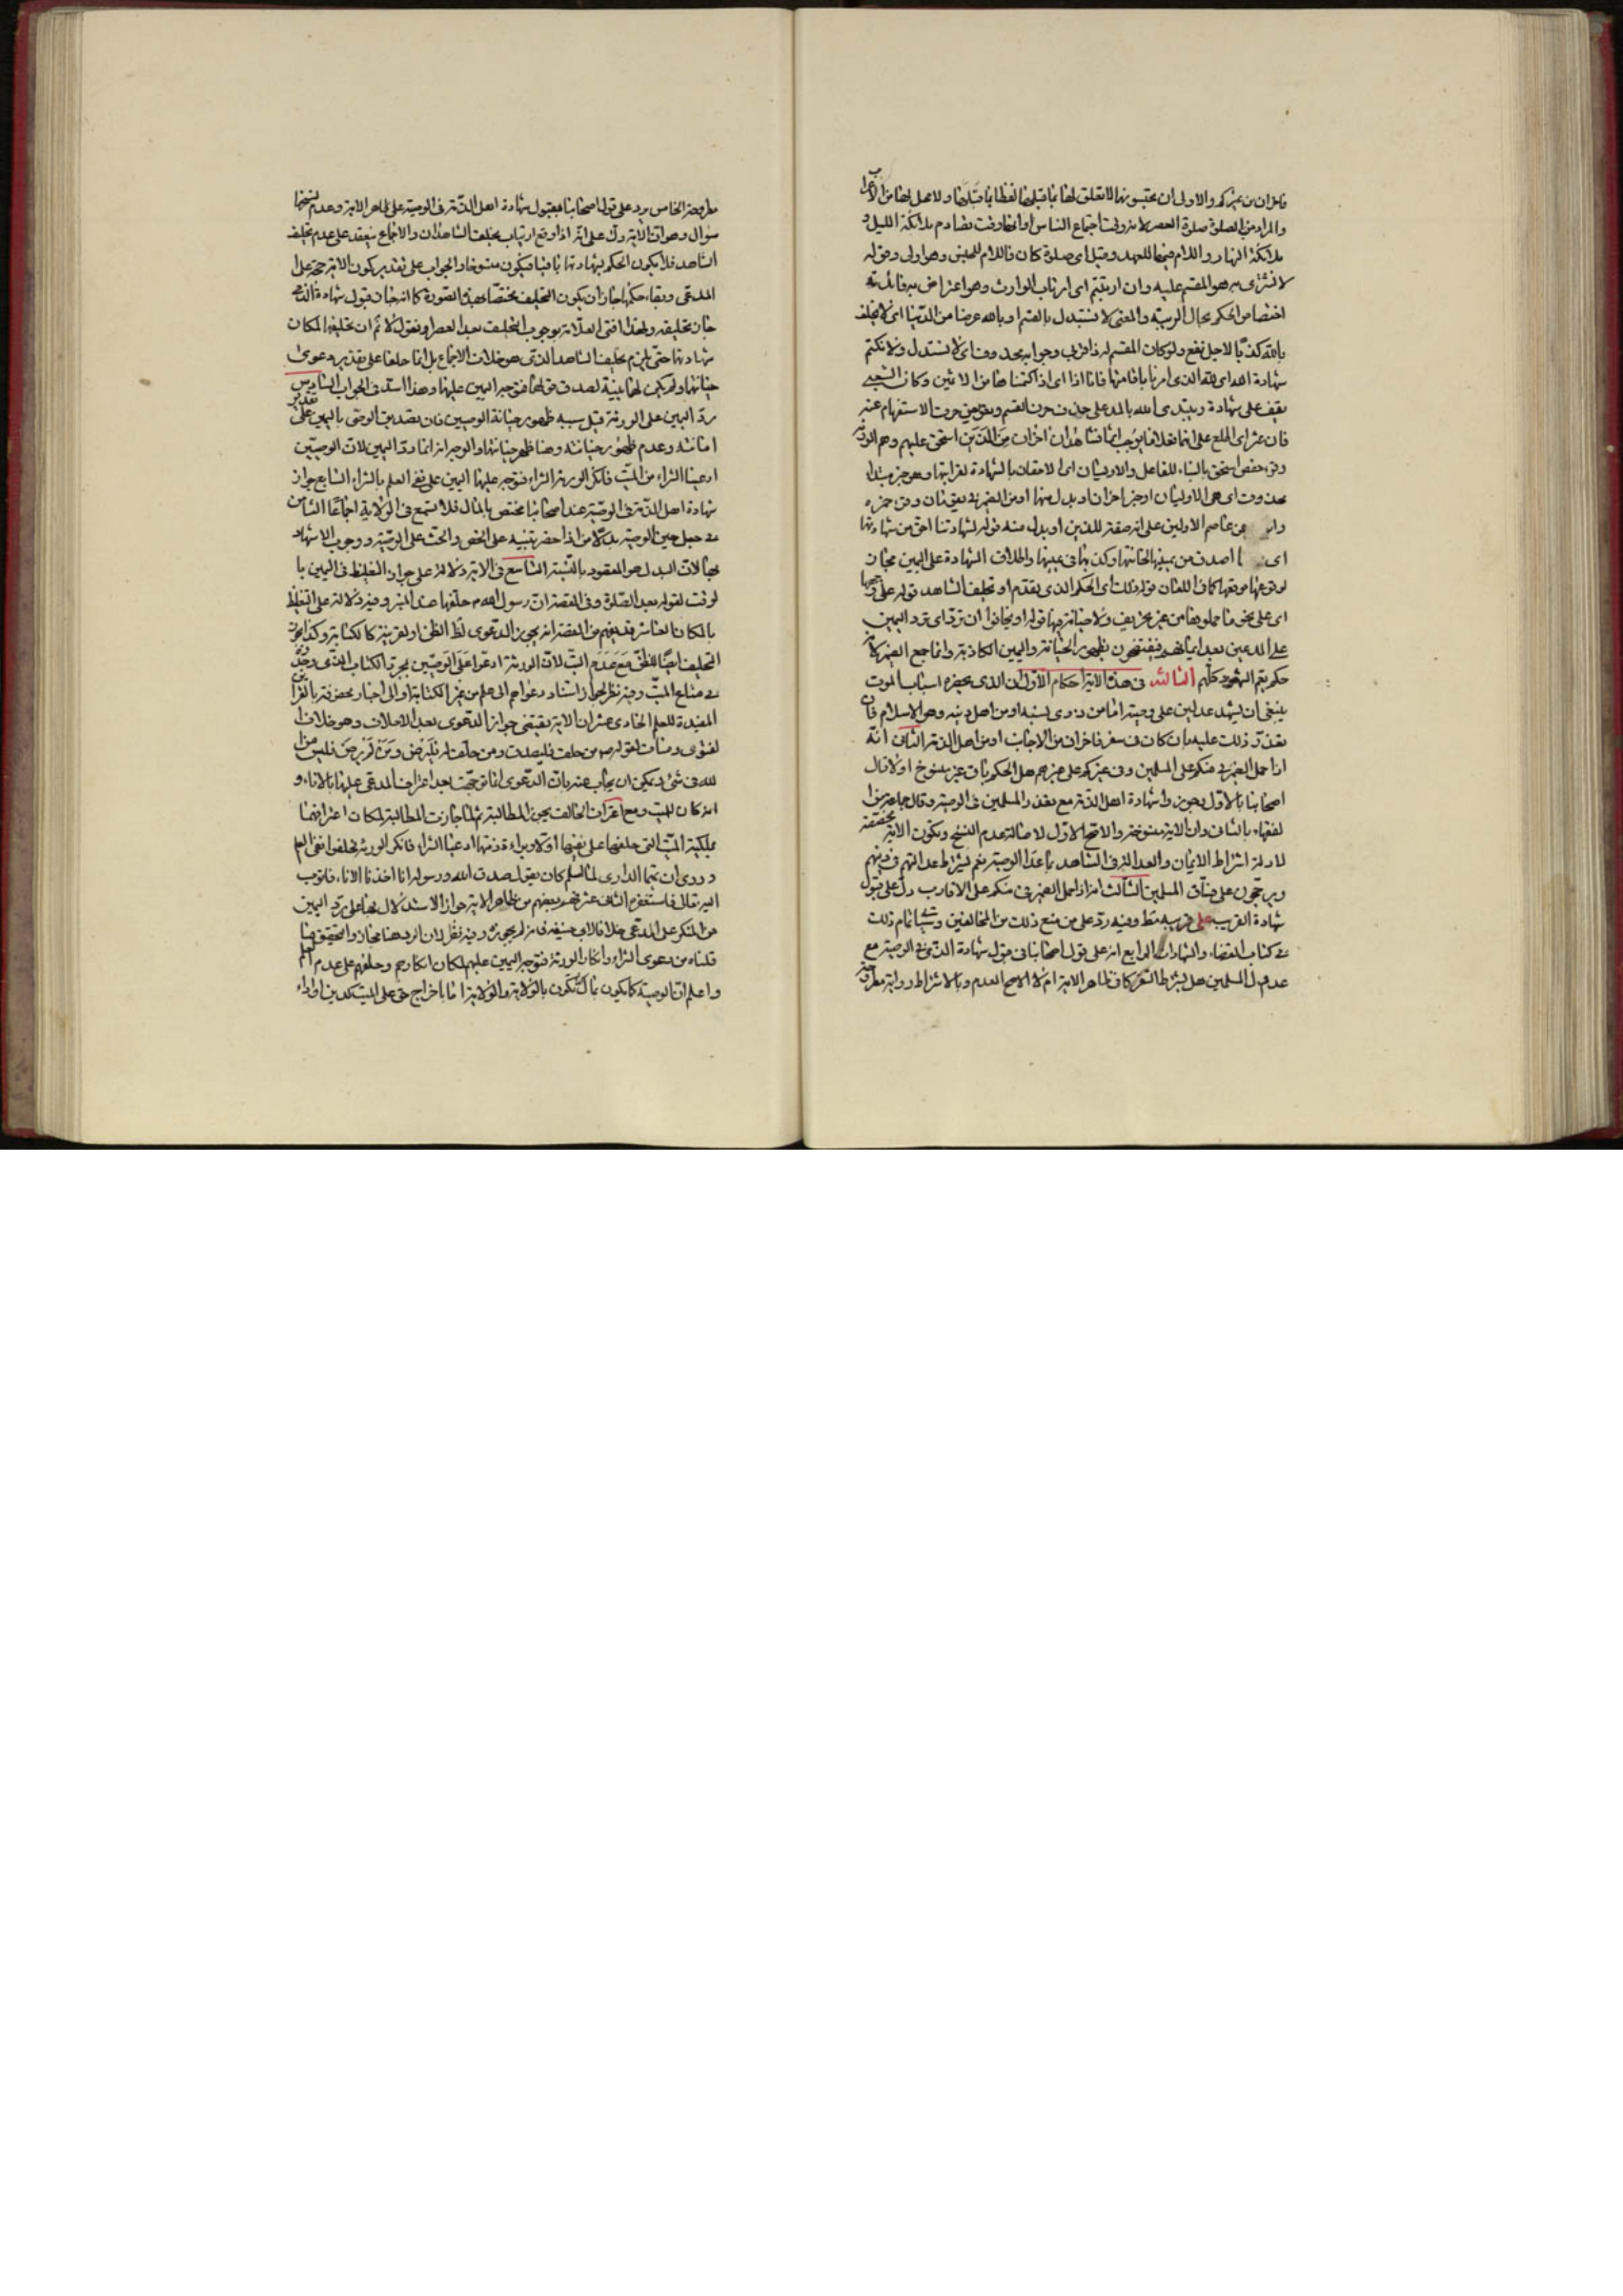 فاخران من غيركم والاولى ان يحتبسونهما لا تعلق لها بما قبلها لفظا بما قبلها ولا محل لها من الاعراب
والمراد من الصلوة صلوة العصر لانه وقت اجتماع الناس او انها وقت تصادم ملائكة الليل و
ملائكة النهار واللام فيها للعهد وقيل اى صلوة كان فاللام للجنس وهو اولى وقوله
لا نشترى به هو المقسم عليه وان ارتبتم اى ارتاب الوارث وهو اعتراض به فائدته
اختصاص الحكم بحال الريبة والمعنى لا نستبدل بالقسم او بالله عرضا من الدنيا اى لا نحلف
بالله كذبا لاجل نفع ولو كان المقسم له ذا قربى وجوابه محذوف اى لا نستبدل ولا نكتم
شهادة الله اى الله الذى امرنا باقامتها فانا اذا اى اذا كتمنا ها من الاثمين وكان الشعبى
يقف على شهادة ويبتدى الله بالمد على حذف حرف القسم وتعويض حرف الاستفهام عنه
فان عثر اى اطلع على انهما فعلا ما يوجب اثما فشاهدان اخران من الذين استحق عليهم وهم الورثة
وقرء حفص استحق بالبناء للفاعل والاوليان اى الاحقان بالشهادة لقرابتهما وهو خبر مبتداء
محذوف اى هما الاوليان او خبر اخران او بدل منهما او من الضمير فى يقومان وقرء حمزه
عن عاصم الاولين على انه صفة للذين او بدل منه قوله لشهادتنا احق من شهادتهما
اى اصدق من يمينهما لخيانتهما وكذبهما فى يمينهما واطلاق الشهادة على اليمين مجاز
لوقوعها موقعها كما فى اللعان قوله ذلك اى الحكم الذى تقدم او تحليف الشاهد قوله على وجهها
اى على نحو ما حملوها من غير تحريف ولا خيانة فيها قوله او يخافوا ان ترد اى ترد اليمين
على المدعين بعد ايمانهم فيفتضحون بظهور الخيانة واليمين الكاذبة وانما جمع الضمير لانه
حكم يعم الشهود كلهم الثالثه فى هذه الاية احكام الاول ان الذى يحضره اسباب الموت
ينبغى ان يشهد عدلين على وصيته اما من ذوى نسبه او من اهل دينه وهو الاسلام فان
تعذر ذلك عليه بان كان فى سفر فاخران من الاجانب او من اهل الذمة الثانى انه
اذا حمل الضمير فى منكم على المسلمين وفى غيركم على غيرهم هل الحكم باق غير منسوخ او لا قال
اصحابنا بالاول وجوزوا شهادة اهل الذمة مع تعذر المسلمين فى الوصية وقال جماعة من ا
لفقهاء بالثانى وان الاية منسوخة والاصح الاول لاصالة عدم النسخ وتكون الاية مخصصة
لادلة اشتراط الايمان والعدالة فى الشاهد بما عدا الوصية نعم يشترط عدالتهم فى دينهم
ويرجحون على فساق المسلمين الثالث انه اذا حمل الضمير فى منكم على الاقارب دل على قبول
شهادة القريب على قريبه مط وفيه رد على من منع ذلك من المخالفين وسياتى تمام ذلك
فى كتاب القضاء والشهادات الرابع انه على قول اصحابنا فى قبول شهادة الذمى فى الوصية مع
عدول المسلمين هل يشترط السفر كما فى ظاهر الاية ام لا الاصح العدم وبالاشتراط رواية مطروحة
مطروحة الخامس يرد على قول اصحابنا بقبول شهادة اهل الذمة فى الوصية على ظاهر الاية وعدم نسخها
سؤال وهو ان الاية دلت على انه اذا وقع ارتياب يحلف الشاهدان والاجماع منعقد على عدم تحليف
الشاهد فلا يكون الحكم بشهادتهما باقيا فيكون منسوخا والجواب على تقدير كون الاية حجة على ا
لمدعى وبقاء حكمها جاز ان يكون التحليف مختصا بهذه الصورة كما انه جاز قبول شهادة الذمى
جاز تحليفه ولهذا افتى العلامة بوجوب التحليف بعد العصر او نقول لا نم ان تحليفهما لمكان
شهادتهما حتى يلزم تحليف الشاهد الذى هو خلاف الاجماع بل انما حلفا على تقدير دعوى
خيانتهما ولم يكن لهما بينة لصدق قولهما فتوجه اليمين عليهما وهذا اسد فى الجواب السادس
رد اليمين على الورثة قيل سببه ظهور خيانة الوصيين فان تصديق الوصى باليمين على تقدير
امانته وعدم ظهور خيانته وهنا ظهر خيانتهما والوجه انه انما رد اليمين لان الوصيين
ادعيا الشراء من الميت فانكر الورثة الشراء فتوجه عليهما اليمين على نفى العلم بالشراء السابع جواز
شهادة اهل الذمة فى الوصية عند اصحابنا مختص بالمال فلا تسمع فى الولاية اجماعا الثامن
فى جعل حين الوصية بدلا من اذا حضر تنبيه على الحض والحث على الوصية ووجوب الاشهاد
التاسع فى الاية دلالة على جواز التغليظ فى اليمين با
لوقت لقوله بعد الصلوة وفى القصة ان رسول الله ص حلفهما عند المنبر وفيه دلالة على التغليظ
بالمكان العاشر قد يفهم من القصة انه يجوز الدعوى
التحليف ايضا للظن مع عدم البت لان الورثة ادعوا على الوصيين بمجرد الكتاب الذى وجد
فى متاع الميت وفيه نظر لجواز استناد دعواهم الى علم من غير الكتابة او الى اخبار محفوفة بالقرائن
المفيدة للعلم الحادى عشر ان الاية يقتضى جواز الدعوى بعد الاحلاف وهو خلاف ا
لفتوى ومناف لقوله ص من حلف فليصدق ومن حلف له فليرض ومن لم يرض فليس من ا
لله فى شئ ويمكن ان يجاب عنه بان الدعوى انما توجهت بعد اعتراف المدعى عليهما بالاناء و
انه كان للميت ومع اعتراف الحالف يجوز المطالبة
بملكية الميت التى حلفهما على نفيها اولا وبراءة ذمتهما ادعيا الشراء فانكر الورثة فحلفوا نفى العلم
وروى ان تميما الدارى لما اسلم كان يقول صدق الله ورسوله انا اخذنا الاناء فاتوب
اليه تعالى فاستغفره الثانى عشر فهم بعضهم من ظاهر الاية جواز الاستدلال بها على رد اليمين
من المنكر على المدعى خلافا لابى حنيفة فى انه لم يجوزه وفيه نظر لان الرد هنا مجاز والتحقيق ما
قلناه من دعوى الشراء وانكار الورثة فتوجه اليمين عليهم لمكان انكارهم وحلفهم على عدم العلم
واعلم ان الوصية كما يكون بمال تكون بالولاية والولاية اما باخراج حق على الميت كدين او اداء